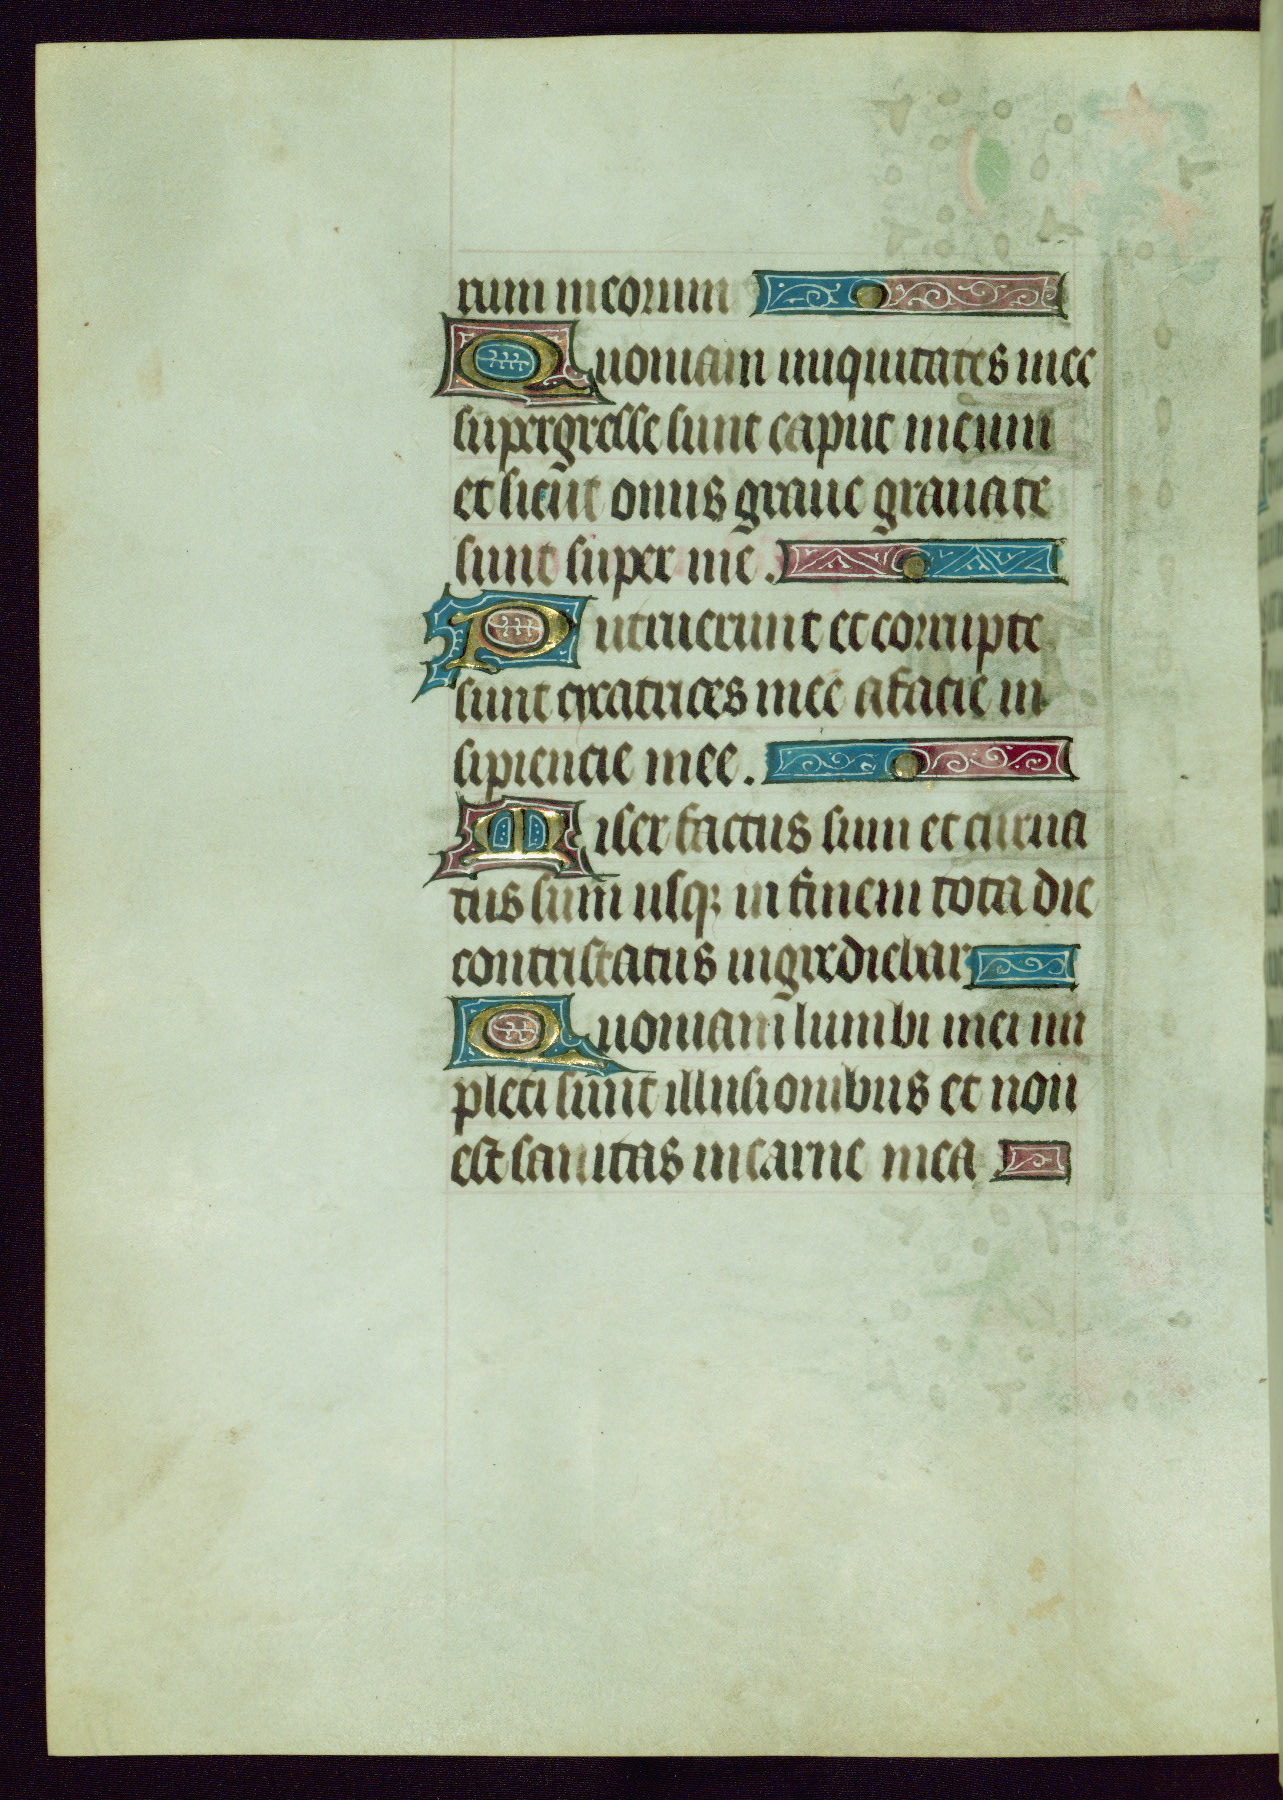 rum meorum
Quoniam iniquitates mee
supergresse sunt caput meum
et sicut onus graue grauate
sunt super me.
Putruerunt et corrupte
sunt cicatrices mee a facie in
sipiencie mee.
Miser factus sum et curua
tus sum usq; in finem tota die
contristatus ingrediebar
Quoniam lumbi mei im
pleti sunt illusionibus et non
est sanitas in carne mea